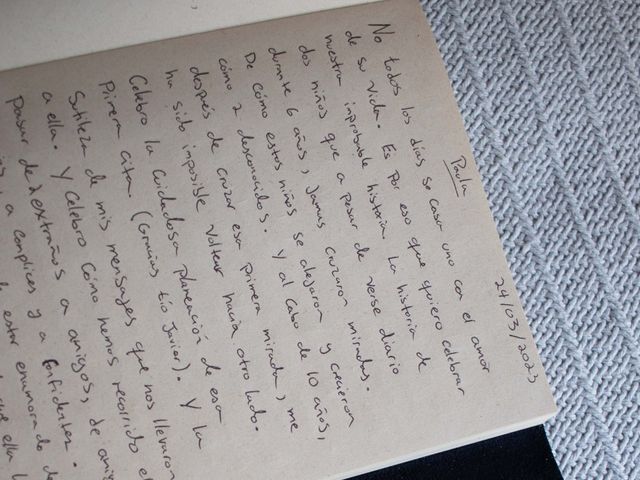 24/03/2023
Paula
No todos los días se casa uno con el amor
de su vida. Es por eso que quiero celebrar
nuestra improbable historia. La historia de
dos niños que a pesar de verse diario
durante 6 años, jamas cruzaron miradas.
De cómo estos niños se alejaron y crecieron
cómo 2 desconocidos. Y al cabo de 10 años,
después de cruzar esa primera mirada, me
ha sido imposible voltear hacia otro lado.
Celebro la cuidadosa planeación de esa
Primera cita. (Gracias tío Javier). Y la
Sutileza de mis mensajes que nos llevaron
a ella. Y celebro cómo hemos recorrido el
Pasar de extraños a amigos, de
a complices y a confidentes.
estar enamorado de
que ella